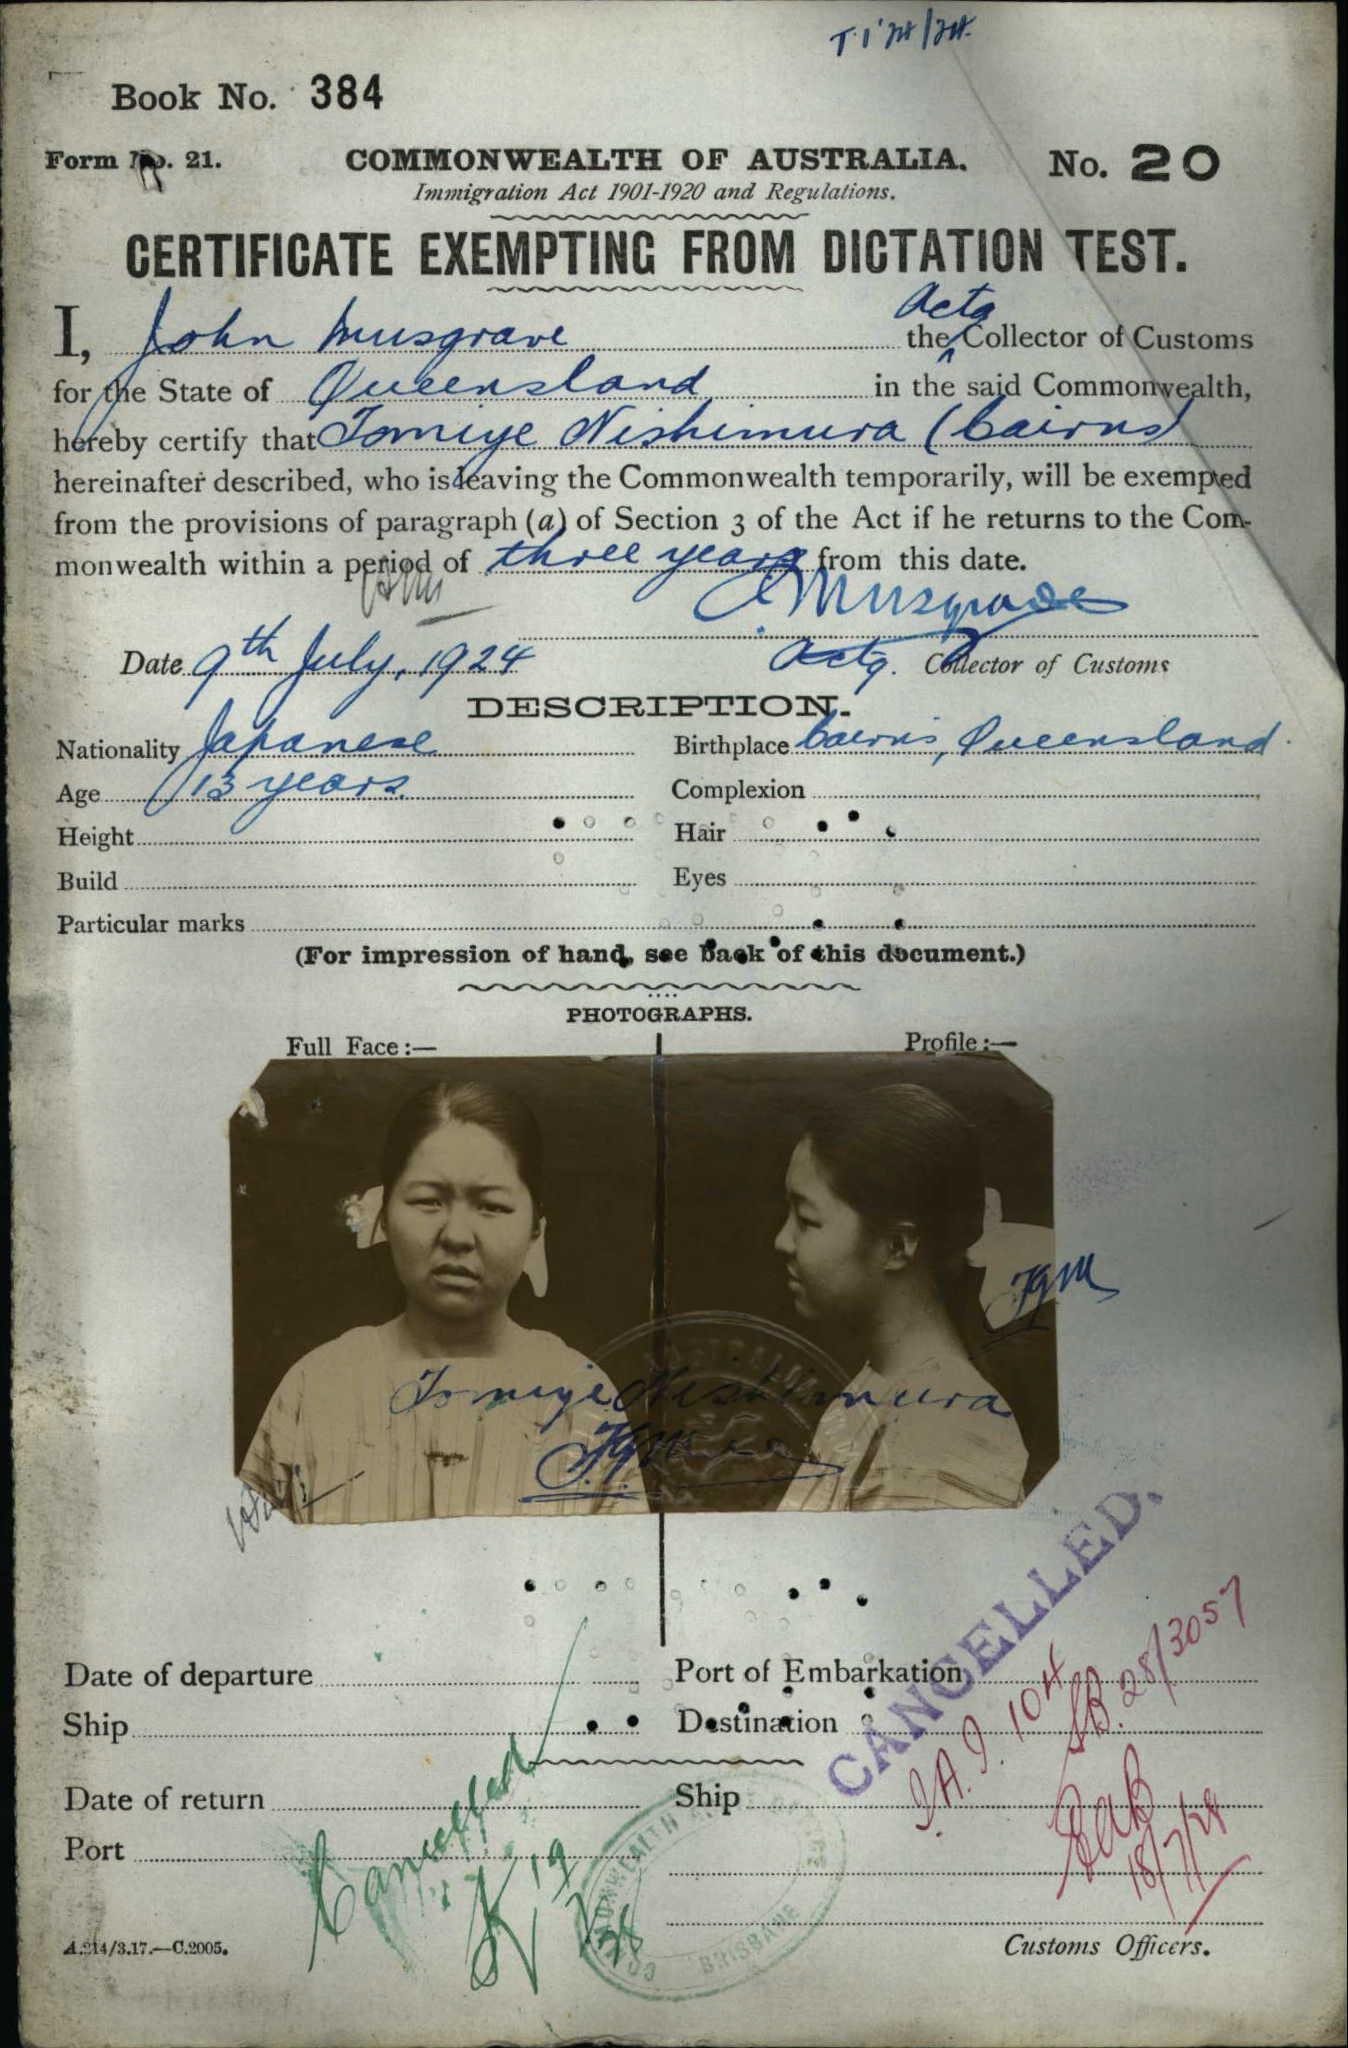 Book No. 384
Form No. 21.
COMMONWEALTH OF AUSTRALIA.
No. 20
Immigration Act 1901-1920 and Regulations.
CERTIFICATE EXEMPTING FROM DICTATION TEST.
Actg
I, John Musgrave the Collector of Customs
for the State of Queensland in the said Commonwealth,
hereby certify that Tomiye Nishimura (Cairns)
hereinafter described, who is leaving the Commonwealth temporarily, will be exempted
from the provisions of paragraph (a) of Section 3 of the Act if he returns to the Com-
monwealth within a period of three years from this date.
Musgrave
Date 9th July, 1924 Actg. Collector of Customs
DESCRIPTION.
Nationality Japanese Birthplace Cairns, Queensland.
Age 13 years Complexion
Height Hair
Build Eyes
Particular marks
(For impression of hand, see back of this document.)
PHOTOGRAPHS.
Full Face:— Profile:—
Tomiye Nishimura
CANCELLED.
Date of departure Port of Embarkation
Ship Destination
Date of return Ship
Port
Cancelled
S.B. 28/3057
18/7/28
COMMONWEALTH
BRISBANE
A.214/3.17.—C.2005.
Customs Officers.